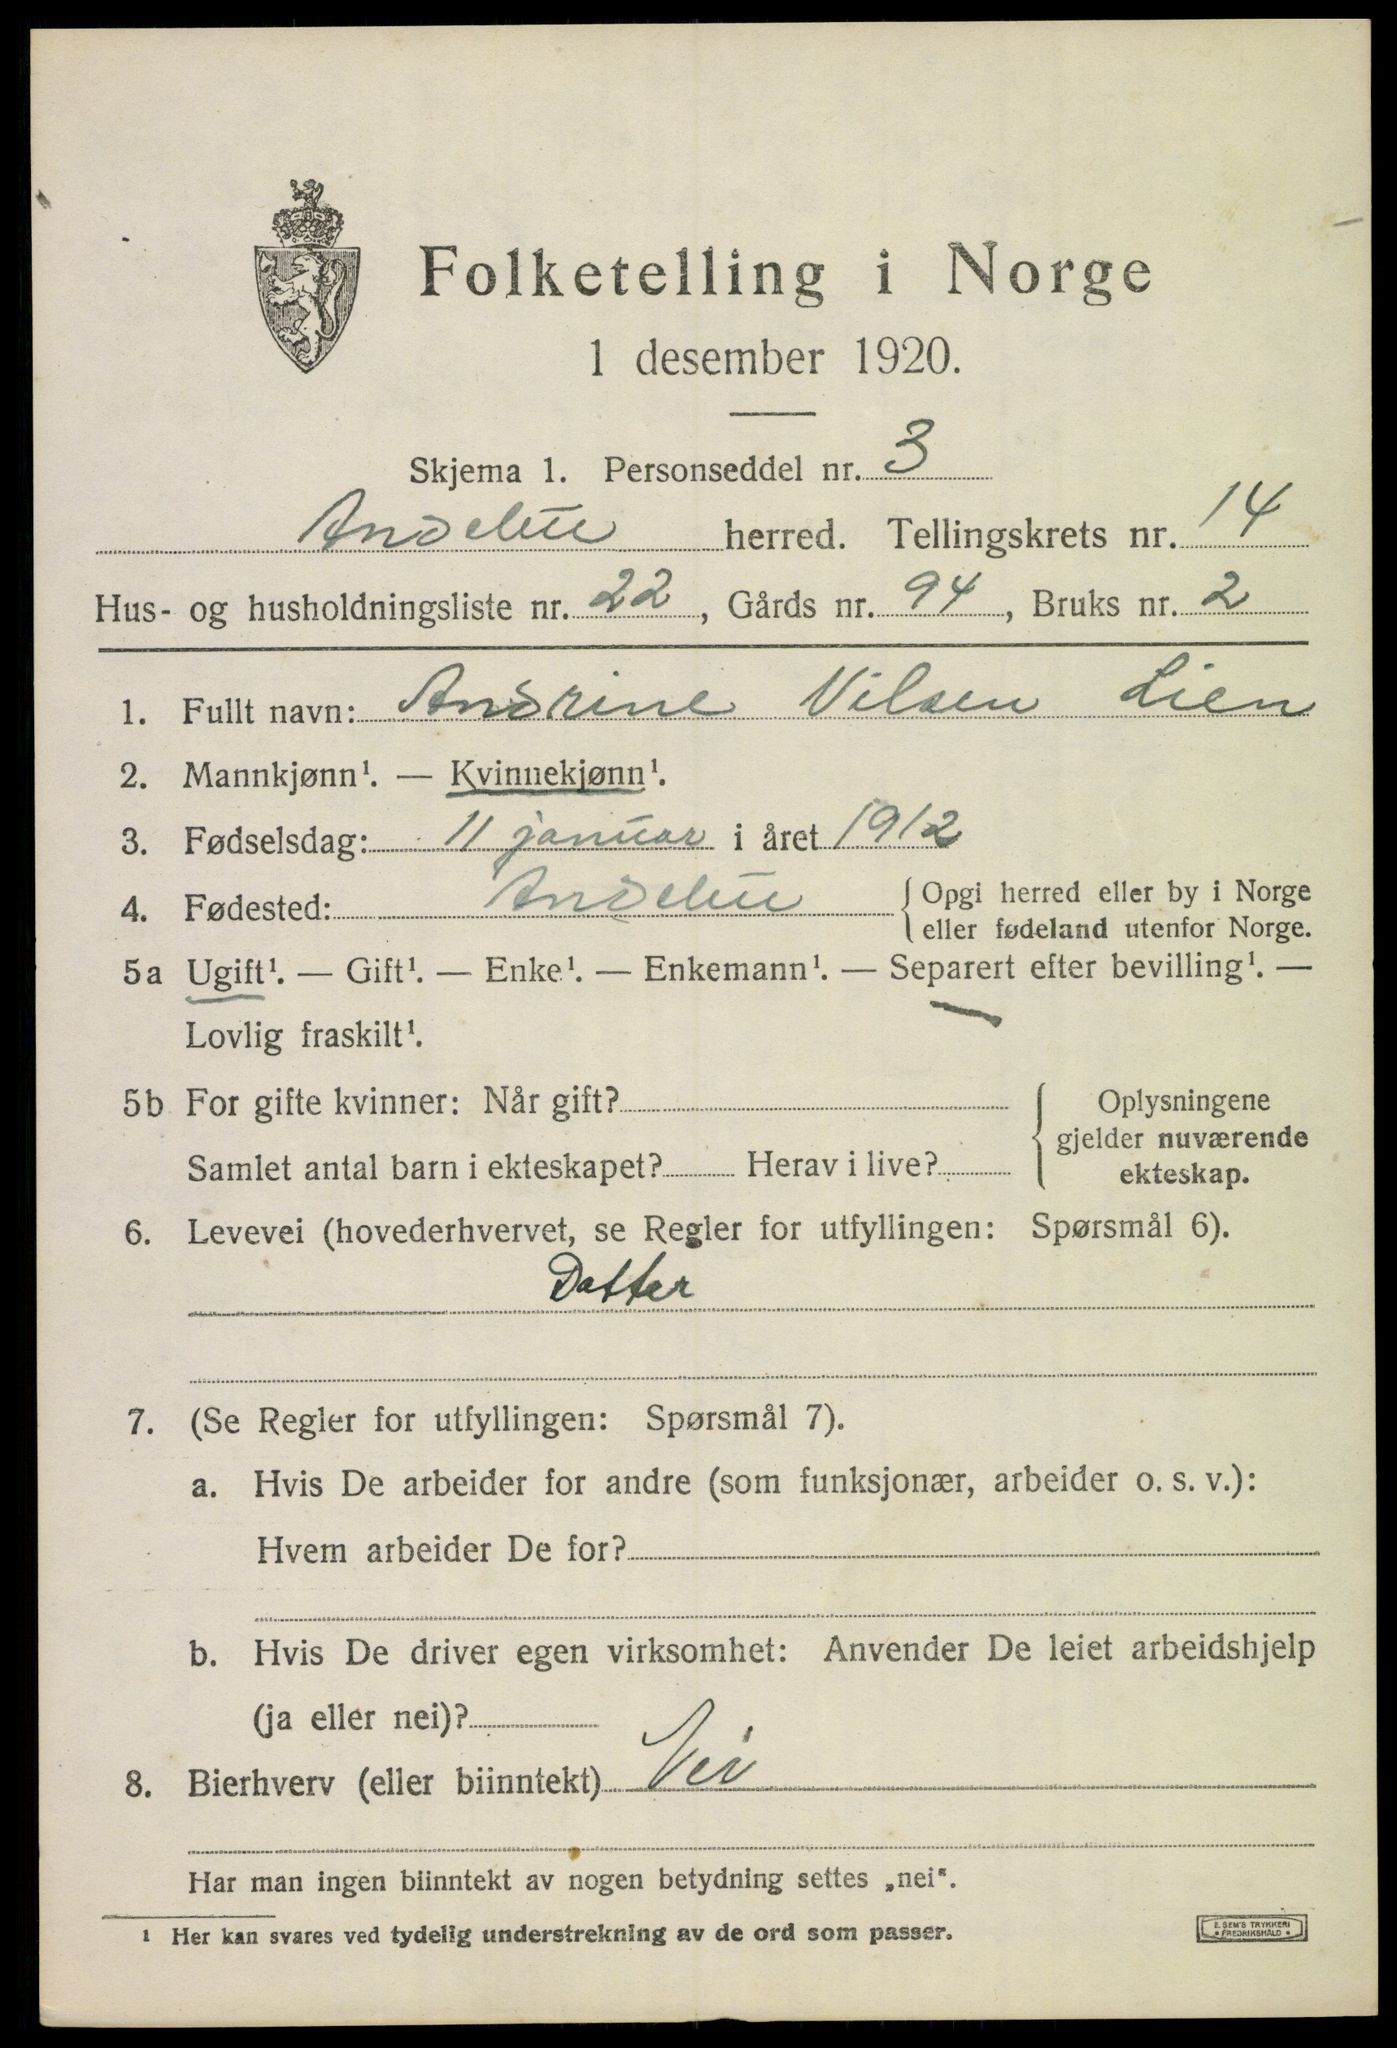 Folketelling i Norge
1 desember 1920.
Skjema 1. Personseddel nr. 3
Andebu herred. Tellingskrets nr. 14
Hus- og husholdningsliste nr. 22, Gårds nr. 94, Bruks nr. 2
1. Fullt navn: Andrine Nilsen Lien
2. Mannkjønn¹. — Kvinnekjønn¹.
3. Fødselsdag: 11 januar i året 1912
4. Fødested: Andebu { Opgi herred eller by i Norge
eller fødeland utenfor Norge.
5a Ugift¹. — Gift¹. — Enke¹. — Enkemann¹. — Separert efter bevilling¹. —
Lovlig fraskilt¹.
5b For gifte kvinner: Når gift? { Oplysningene
gjelder nuværende
Samlet antal barn i ekteskapet? Herav i live? ekteskap.
6. Levevei (hovederhvervet, se Regler for utfyllingen: Spørsmål 6).
Datter
7. (Se Regler for utfyllingen: Spørsmål 7).
a. Hvis De arbeider for andre (som funksjonær, arbeider o. s. v.):
Hvem arbeider De for?
b. Hvis De driver egen virksomhet: Anvender De leiet arbeidshjelp
(ja eller nei)?
8. Bierhverv (eller biinntekt) Nei
Har man ingen biinntekt av nogen betydning settes „nei“.
¹ Her kan svares ved tydelig understrekning av de ord som passer.
E. SEM'S TRYKKERI
• FREDRIKSHALD •